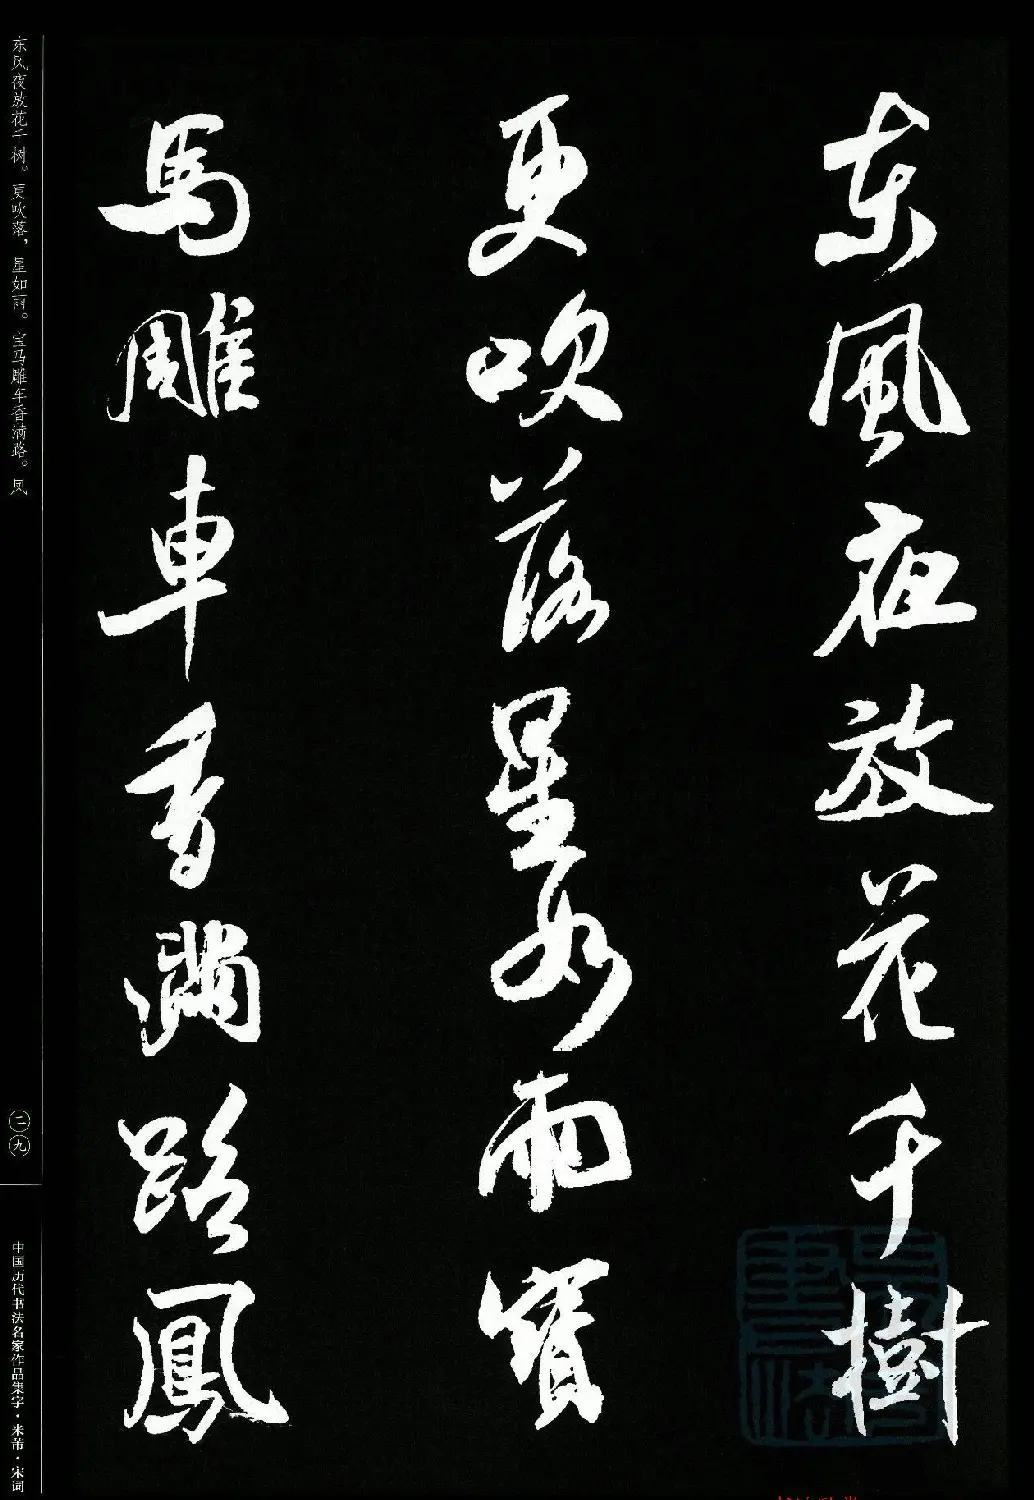 東風夜放花千樹
更吹落星如雨寶
馬雕車香滿路鳳
东风夜放花千树。更吹落，星如雨。宝马雕车香满路。凤
二九
中国历代书法名家作品集字·米芾·宋词